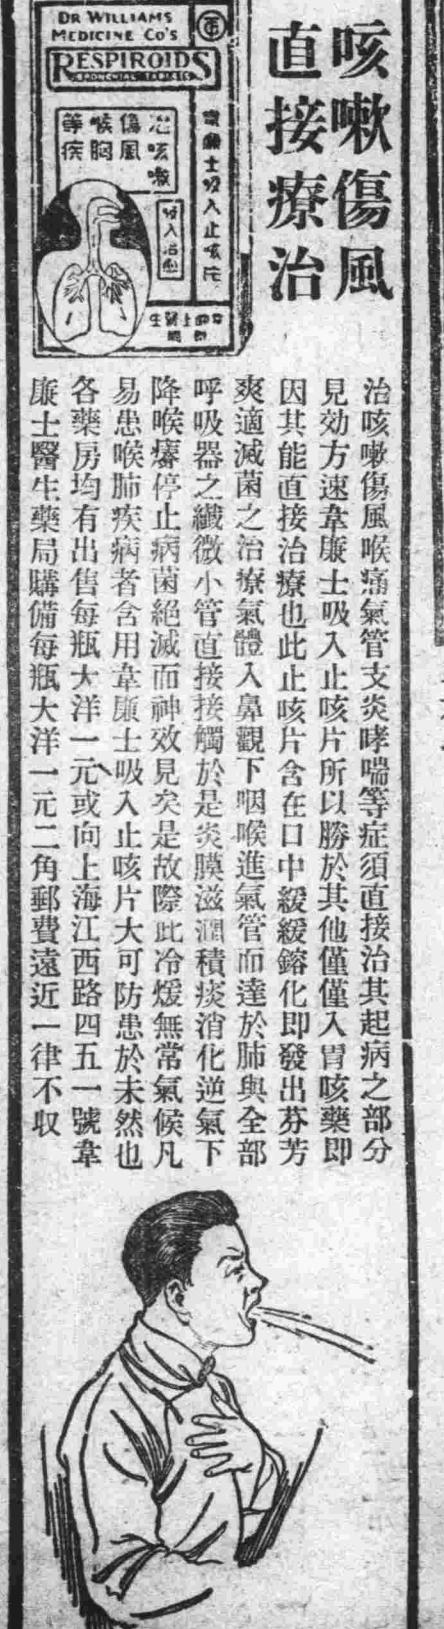 咳嗽傷風
直接療治
DR WILLIAMS
MEDICINE CO'S
RESPIROIDS
BRONCHIAL TABLETS
治咳嗽
傷風
喉胸
等疾
韋廉士吸入止咳片
吸入治療
治咳嗽傷風喉痛氣管支炎哮喘等症須直接治其起病之部分
見効方速韋廉士吸入止咳片所以勝於其他僅僅入胃咳藥即
因其能直接治療也此止咳片含在口中緩緩鎔化即發出芬芳
爽適滅菌之治療氣體入鼻觀下咽喉進氣管而達於肺與全部
呼吸器之纖微小管直接接觸於是炎膜滋潤積痰消化逆氣下
降喉癢停止病菌絕滅而神效見矣是故際此冷煖無常氣候凡
易患喉肺疾病者含用韋廉士吸入止咳片大可防患於未然也
各藥房均有出售每瓶大洋一元或向上海江西路四五一號韋
廉士醫生藥局購備每瓶大洋一元二角郵費遠近一律不収